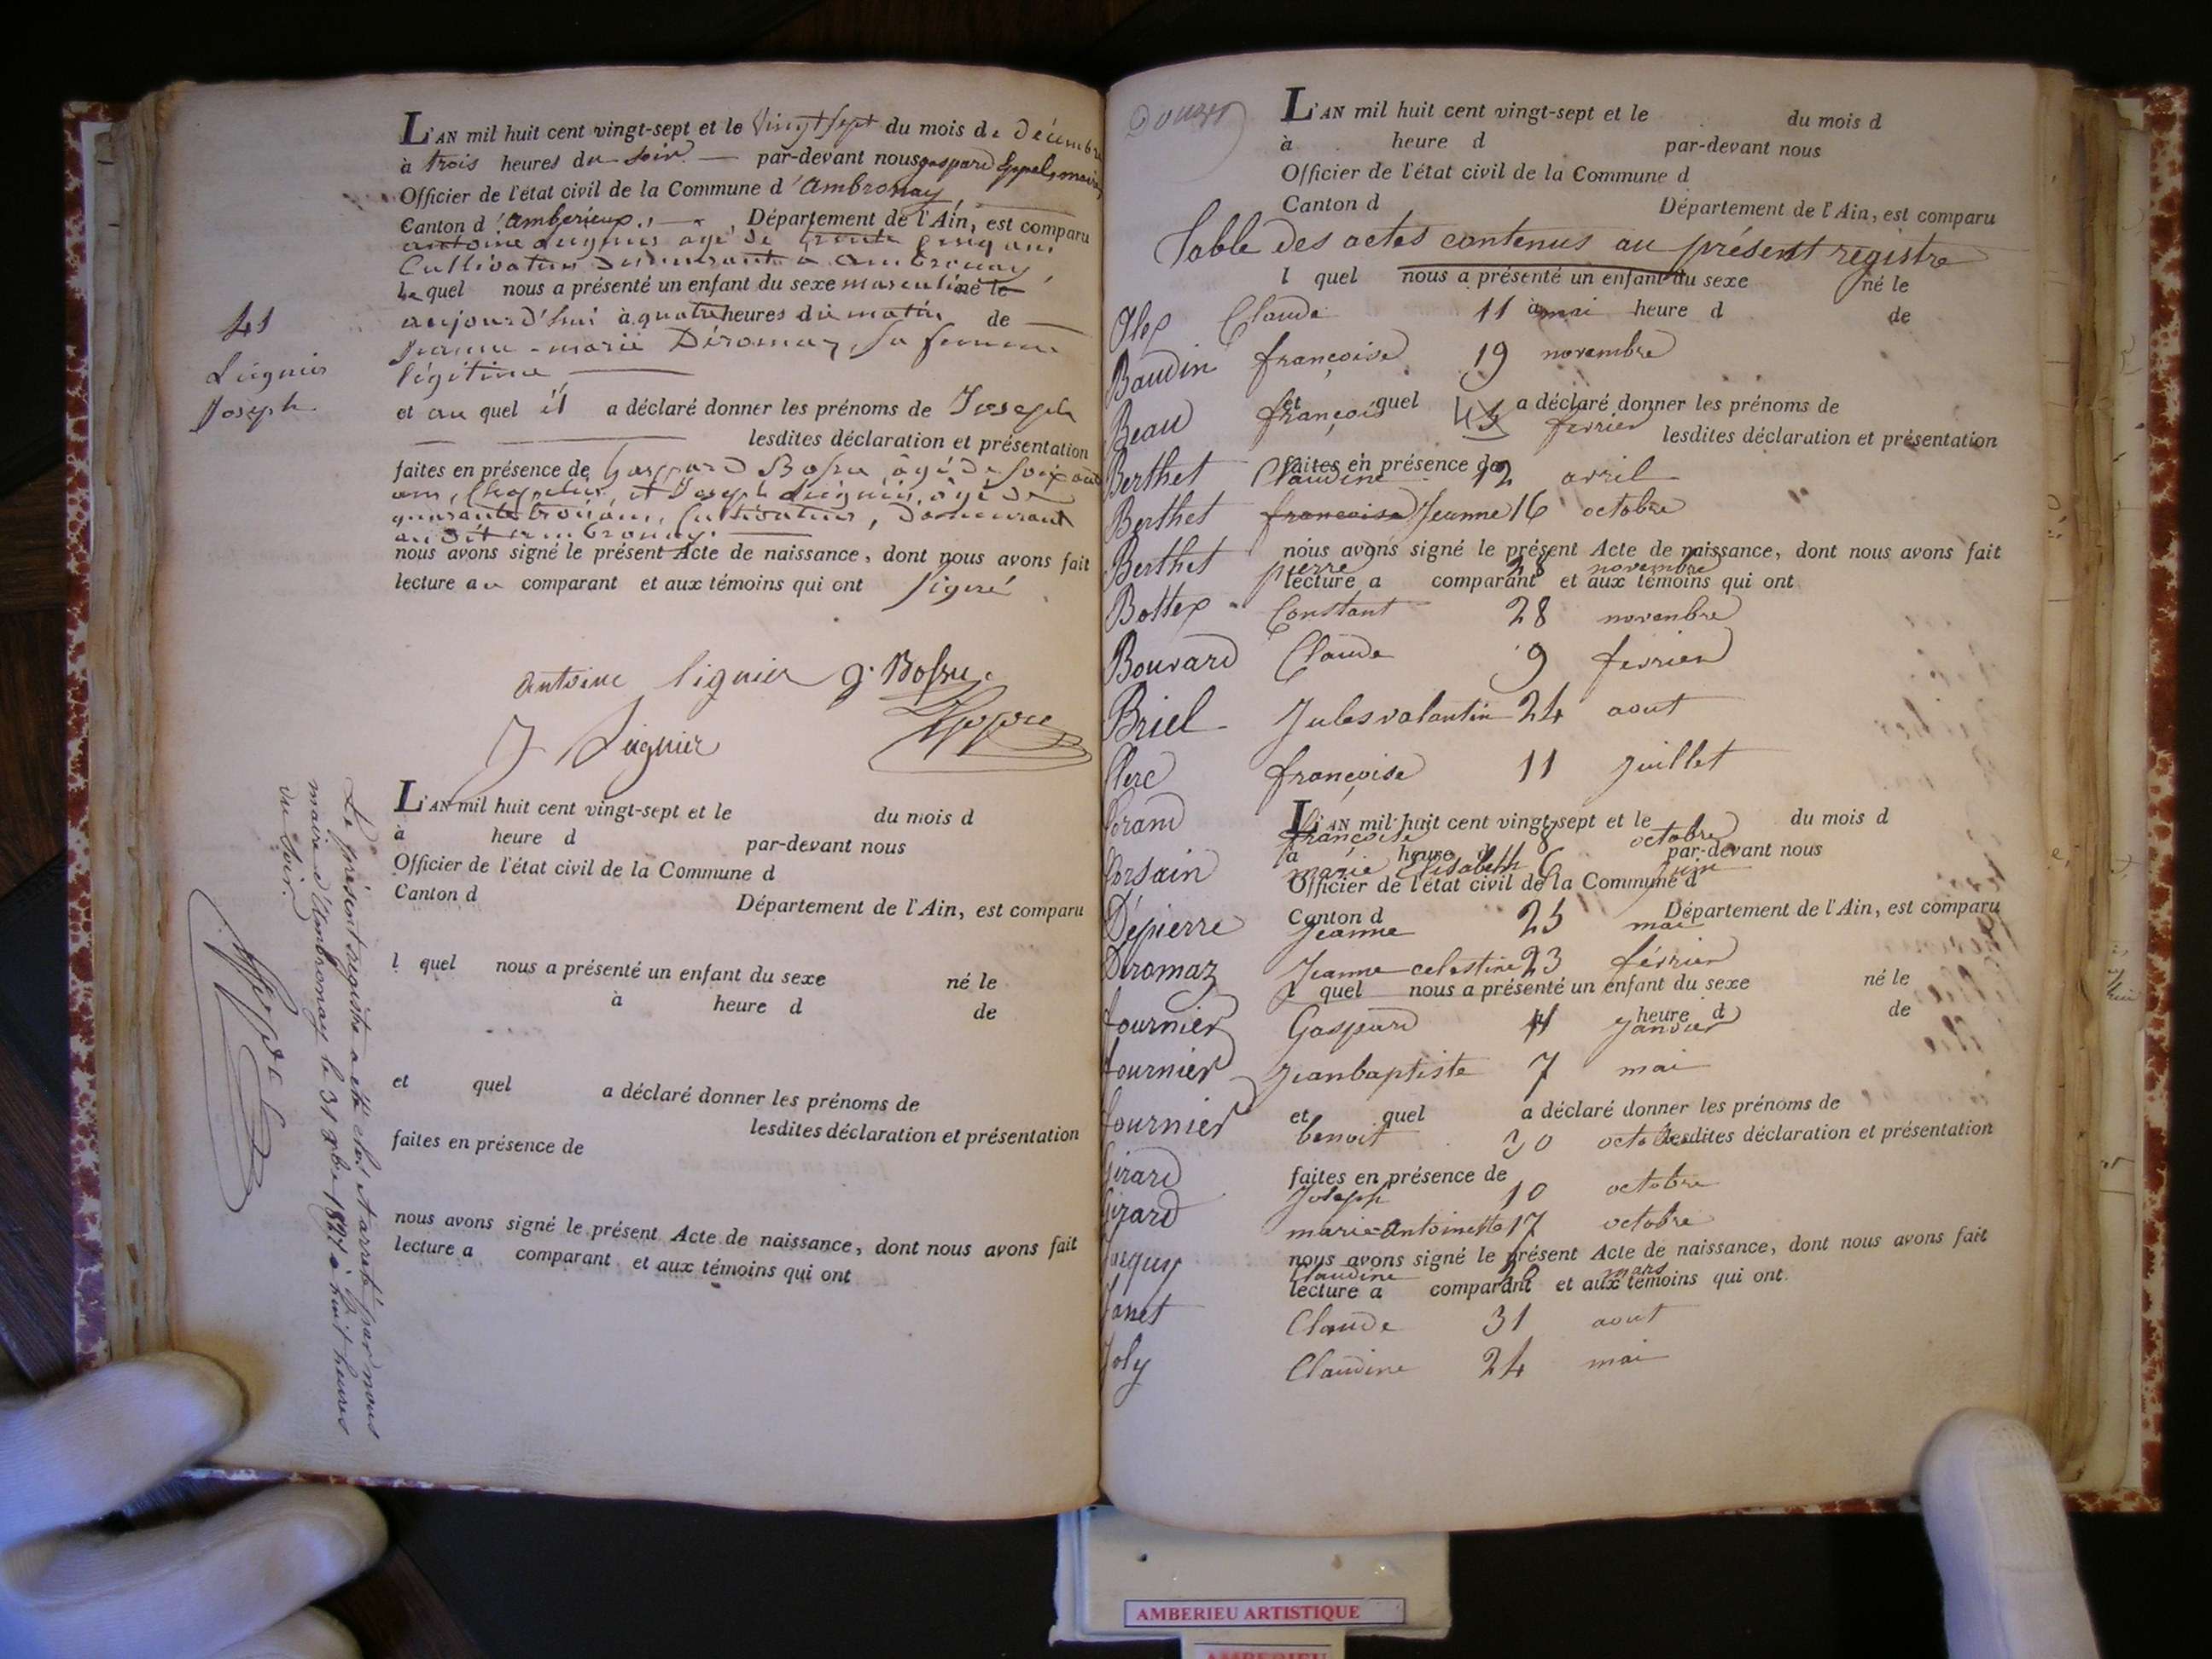 L'AN mil huit cent vingt-sept et le vingt sept du mois de décembre
à trois heures du soir par-devant nous gaspard maire
Officier de l'état civil de la Commune d'ambronay
Canton d'amberieux, Département de l'Ain, est comparu
antoine Lignier âgé de trente cinq ans
Cultivateur demeurant a ambronay,
Le quel nous a présenté un enfant du sexe masculin né le
aujourd'hui à quatre heures du matin de
Jeanne-marie Déromaz, sa femme
légitime
et au quel il a déclaré donner les prénoms de Joseph
lesdites déclaration et présentation
faites en présence de Gaspard Bossu âgé de soixante
ans, et Joseph Lignier, âgé de
quarante trois ans, Cultivateur, demeurant
au dit ambronay.
nous avons signé le présent Acte de naissance, dont nous avons fait
lecture au comparant et aux témoins qui ont signé
41
Lignier
Joseph
antoine lignier g. Bossu
J Lignier
L'AN mil huit cent vingt-sept et le du mois d
à heure d par-devant nous
Officier de l'état civil de la Commune d
Canton d Département de l'Ain, est comparu
l quel nous a présenté un enfant du sexe né le
à heure d de
et quel a déclaré donner les prénoms de
lesdites déclaration et présentation
faites en présence de
nous avons signé le présent Acte de naissance, dont nous avons fait
lecture a comparant et aux témoins qui ont
Le présent registre a été clos et arreté par nous
maire d'Ambronay le 31 xbre 1827 à huit heures
du soir.
L'AN mil huit cent vingt-sept et le du mois d
à heure d par-devant nous
Officier de l'état civil de la Commune d
Canton d Département de l'Ain, est comparu
Table des actes contenus au présent registre
l quel nous a présenté un enfant du sexe né le
à heure d de
Claude 11 mai
Baudin françoise 19 novembre
et quel a déclaré donner les prénoms de
Beau françois février
lesdites déclaration et présentation
faites en présence de
Berthet Claudine 12 avril
Berthet francoise Jeanne 16 octobre
nous avons signé le présent Acte de naissance, dont nous avons fait
Berthet pierre 28 novembre
lecture a comparant et aux témoins qui ont
Bottex Constant 28 novembre
Bouvard Claude 9 fevrier
Briel Jules valantin 24 aout
Clerc françoise 11 juillet
L'AN mil huit cent vingt-sept et le du mois d
françoise 8 octobre
à heure d par-devant nous
marie Elisabeth 6 juin
Officier de l'état civil de la Commune d
Canton d Département de l'Ain, est comparu
Dépierre Jeanne 25 mai
Déromaz Jeanne celestine 23 février
l quel nous a présenté un enfant du sexe né le
heure d de
fournier Gaspard janvier
fournier Jeanbaptiste 7 mai
et quel a déclaré donner les prénoms de
fournier benoit 30 octobre
lesdites déclaration et présentation
faites en présence de
Girard Joseph 10 octobre
Girard marie-Antoinette 17 octobre
nous avons signé le présent Acte de naissance, dont nous avons fait
Claudine mars
lecture a comparant et aux témoins qui ont
Janet Claude 31 aout
Joly Claudine 24 mai
AMBERIEU ARTISTIQUE
AMBERIEU